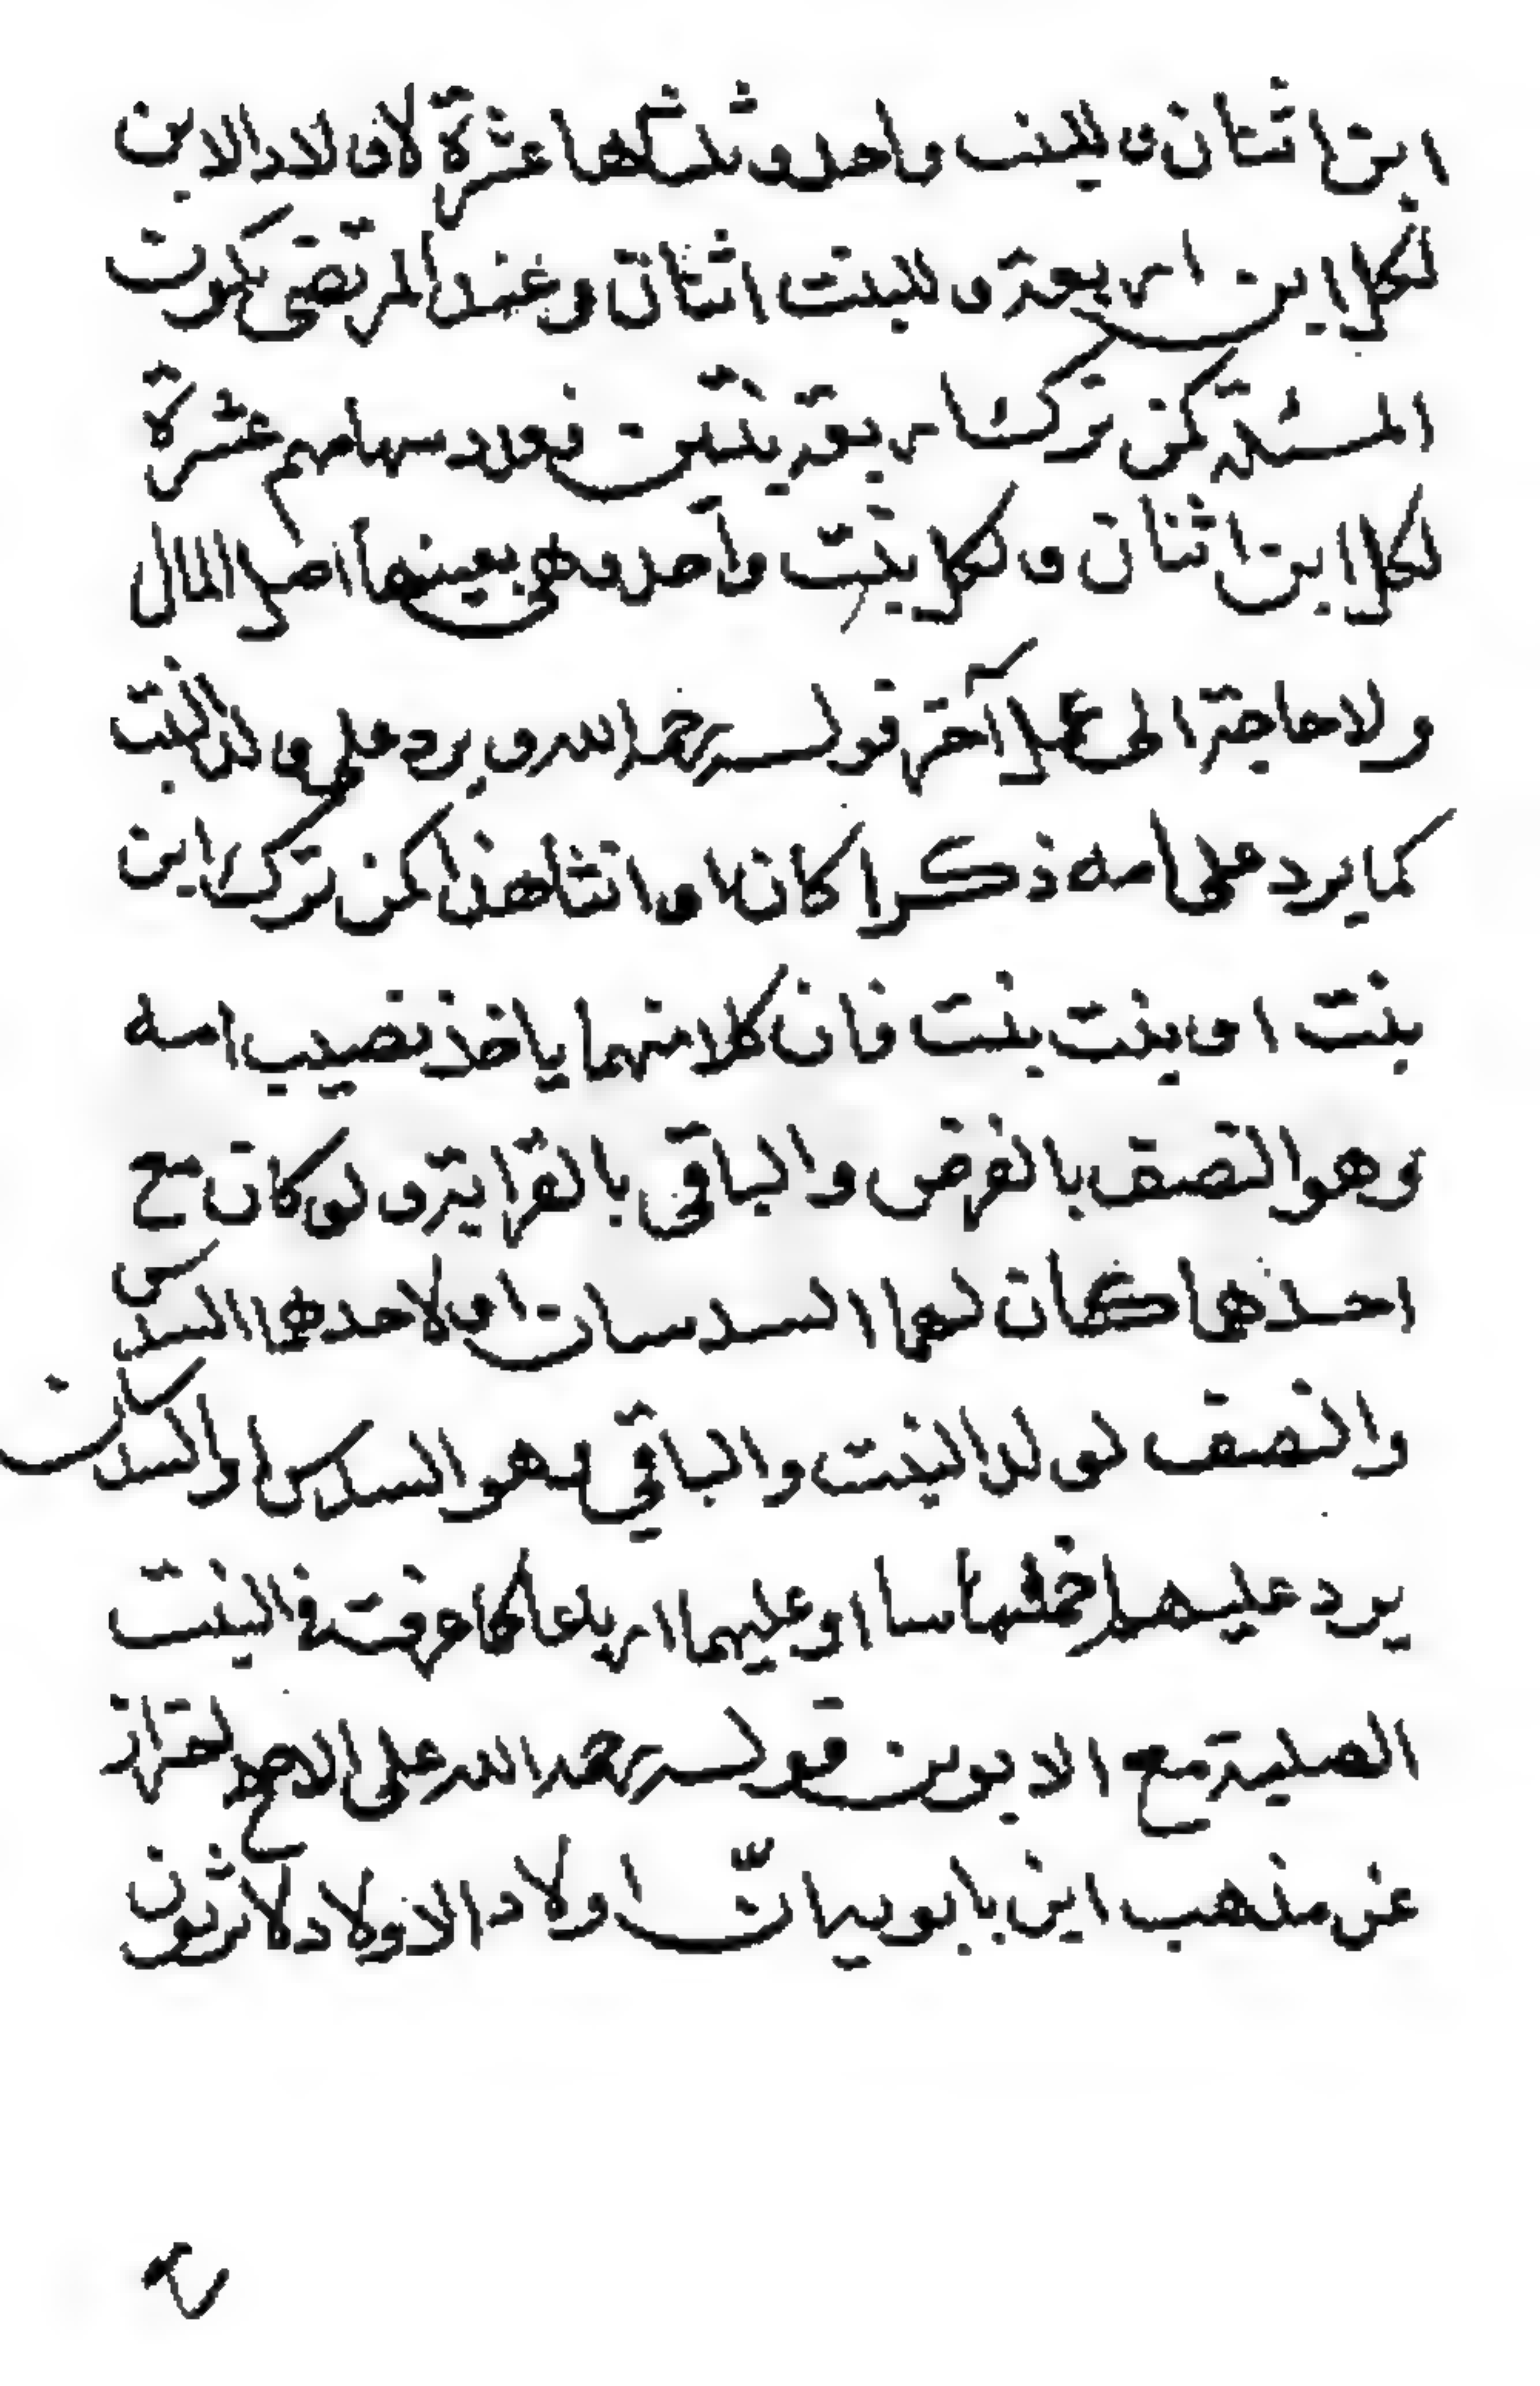 ابن اثنان و للبنت واحد و ثلثها عشرة لاولاد الابن
لكل ابن اربعة و للبنت اثنان و عند المرتضى يكون
المسئلة كمن ترك اربعة بنتين فعدد سهامهم عشرة
لكل ابن اثنان و لكل بنت واحد و هى بعينها اصل المال
ولا حاجة الى عمل آخر قوله رحمه الله و يرد على ولد البنت
كما يرد على امه ذكرا كان او انثا هذا كمن ترك ابن
بنت او بنت بنت فان كلا منهما ياخذ نصيب امه
وهو النصف بالفرض والباقي بالقرابة و لو كان مع
احدهما كان لهما السدسان او لاحدهما السدس
والنصف لولد البنت والباقي وهو السدس او السدسان
يرد عليهم اخماسا او عليهما ارباعا كما عرفت في البنت
الصلبية مع الابوين قوله رحمه الله على الاصح احتراز
عن مذهب ابن بابويه بان اولاد الاولاد لا يرثون